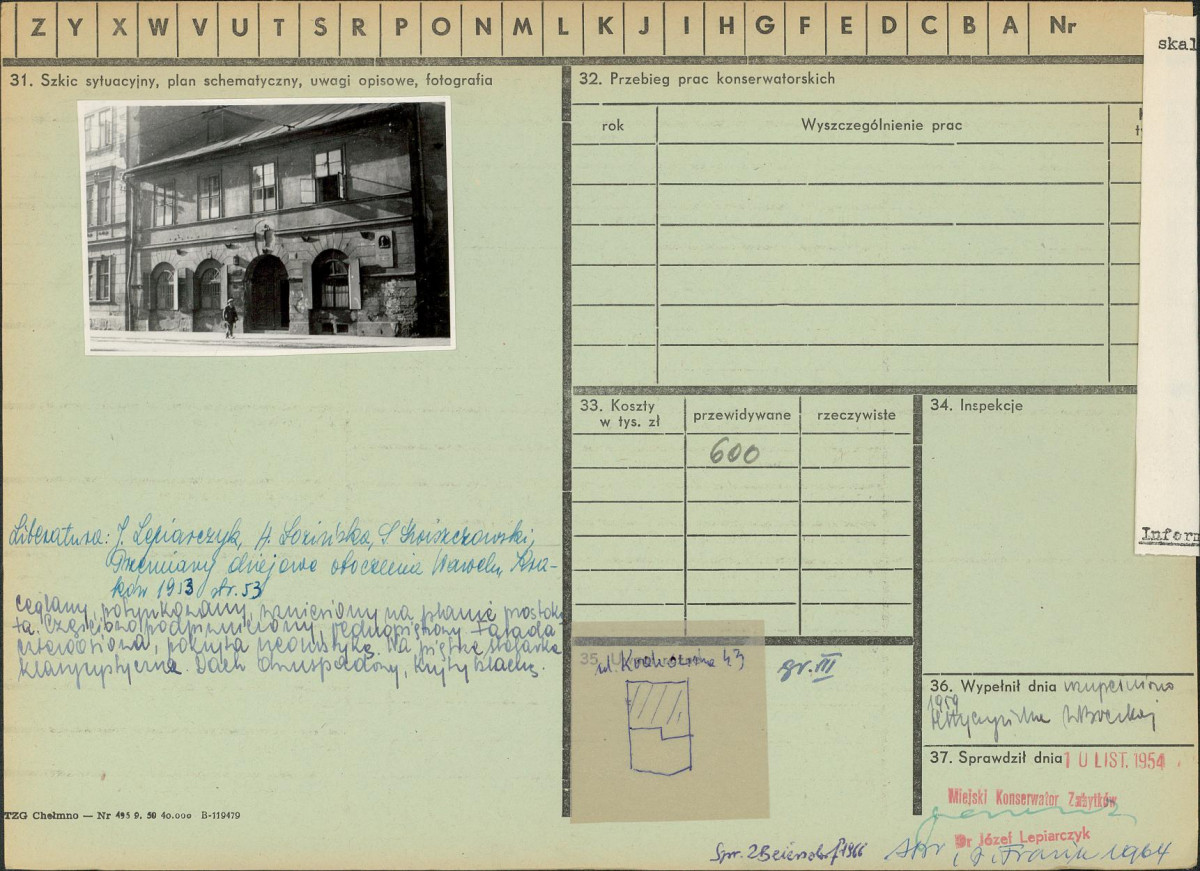 Z Y X W V U T S R P O N M L K J I H G F E D C B A Nr
skal
31. Szkic sytuacyjny, plan schematyczny, uwagi opisowe, fotografia
32. Przebieg prac konserwatorskich
rok
Wyszczególnienie prac
33. Koszty
w tys. zł
przewidywane
rzeczywiste
600
34. Inspekcje
Inform
Literatura: J. Lepiarczyk, A.
Przemiany dziejowe otoczenia Wawelu, Kra-
ków 1953 str. 53
ceglany, potynkowany, wzniesiony na planie prostoką
ta. Częściowo podpiwniczony, jednopiętrowy. Fasada
czteroosiowa, pokryta
klasycystyczna. Dach dwuspadowy, kryty blachą.
35.
ul. 23
gr. III
36. Wypełnił dnia uzupełniono
1959
37. Sprawdził dnia 10 LIST. 1954
Miejski Konserwator Zabytków
Dr Józef Lepiarczyk
TZG Chełmno — Nr 495 9. 50 40.000 B-119479
Spr. 1966
1964